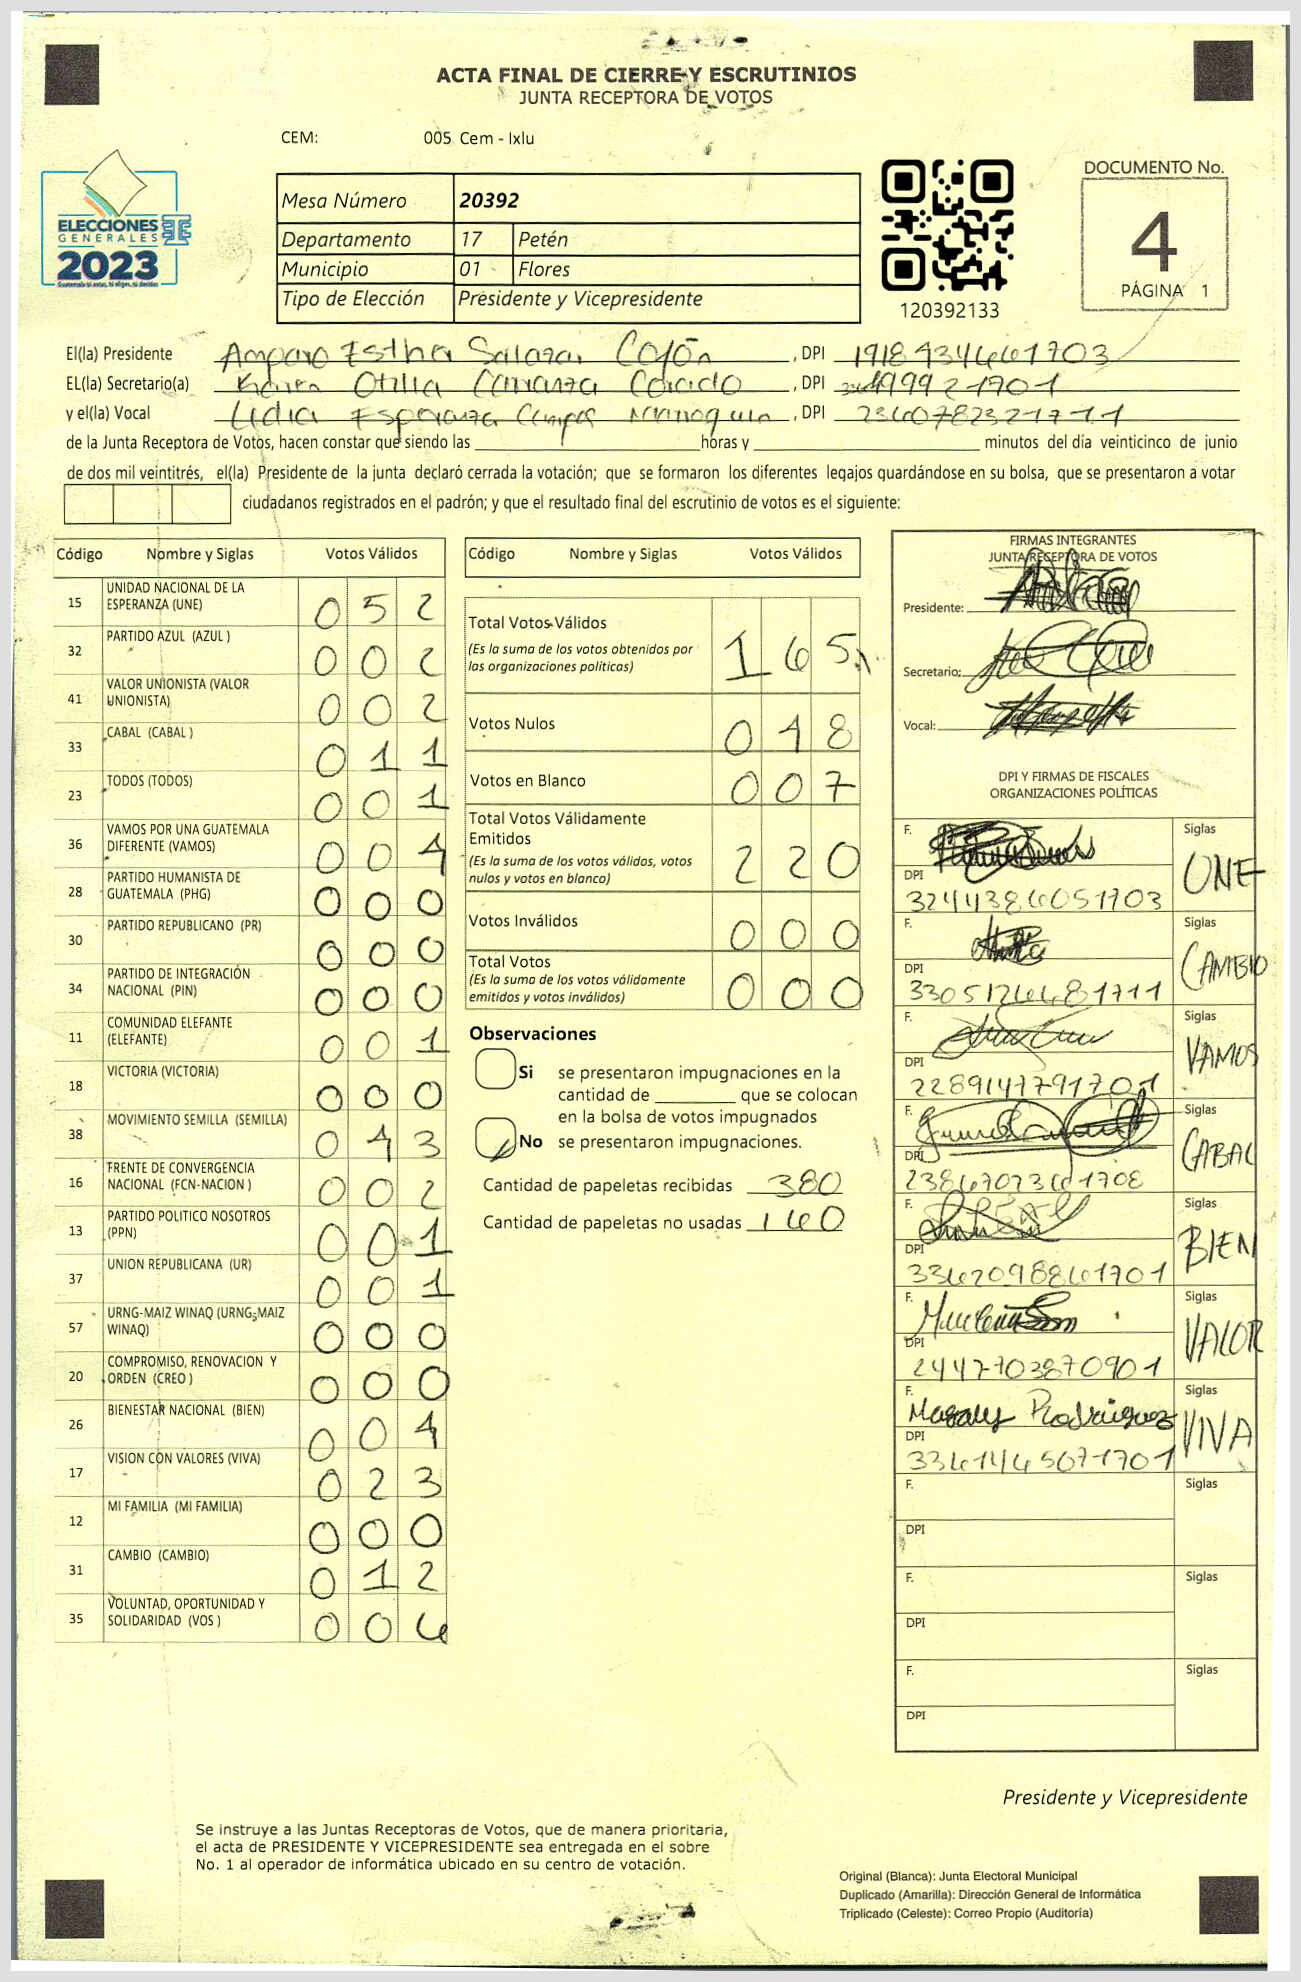 ACTA FINAL DE CIERRE Y ESCRUTINIOS
JUNTA RECEPTORA DE VOTOS
CEM: 005 Cem - Ixlu
ELECCIONES
GENERALES
2023
Mesa Número 20392
Departamento 17 Petén
Municipio 01 Flores
Tipo de Elección Presidente y Vicepresidente
120392133
DOCUMENTO No.
4
PÁGINA 1
El(la) Presidente Amparo Esther Salazar Cofón, DPI 1918934661703
EL(la) Secretario(a) Otilia Carranza Corado, DPI
y el(la) Vocal Lidia Esperanza Campos, DPI 2360782321711
de la Junta Receptora de Votos, hacen constar que siendo las horas y minutos del día veinticinco de junio
de dos mil veintitrés, el(la) Presidente de la junta declaró cerrada la votación; que se formaron los diferentes legajos guardándose en su bolsa, que se presentaron a votar
ciudadanos registrados en el padrón; y que el resultado final del escrutinio de votos es el siguiente:
Código Nombre y Siglas Votos Válidos
15 UNIDAD NACIONAL DE LA ESPERANZA (UNE) 0 5 2
32 PARTIDO AZUL (AZUL ) 0 0 2
41 VALOR UNIONISTA (VALOR UNIONISTA) 0 0 2
33 CABAL (CABAL ) 0 1 1
23 TODOS (TODOS) 0 0 1
36 VAMOS POR UNA GUATEMALA DIFERENTE (VAMOS) 0 0 4
28 PARTIDO HUMANISTA DE GUATEMALA (PHG) 0 0 0
30 PARTIDO REPUBLICANO (PR) 0 0 0
34 PARTIDO DE INTEGRACIÓN NACIONAL (PIN) 0 0 0
11 COMUNIDAD ELEFANTE (ELEFANTE) 0 0 1
18 VICTORIA (VICTORIA) 0 0 0
38 MOVIMIENTO SEMILLA (SEMILLA) 0 4 3
16 FRENTE DE CONVERGENCIA NACIONAL (FCN-NACION ) 0 0 2
13 PARTIDO POLITICO NOSOTROS (PPN) 0 0 1
37 UNION REPUBLICANA (UR) 0 0 1
57 URNG-MAIZ WINAQ (URNG-MAIZ WINAQ) 0 0 0
20 COMPROMISO, RENOVACION Y ORDEN (CREO ) 0 0 0
26 BIENESTAR NACIONAL (BIEN) 0 0 4
17 VISION CON VALORES (VIVA) 0 2 3
12 MI FAMILIA (MI FAMILIA) 0 0 0
31 CAMBIO (CAMBIO) 0 1 2
35 VOLUNTAD, OPORTUNIDAD Y SOLIDARIDAD (VOS ) 0 0 6
Código Nombre y Siglas Votos Válidos
Total Votos Válidos 1 6 5
(Es la suma de los votos obtenidos por
las organizaciones políticas)
Votos Nulos 0 4 8
Votos en Blanco 0 0 7
Total Votos Válidamente
Emitidos 2 2 0
(Es la suma de los votos válidos, votos
nulos y votos en blanco)
Votos Inválidos 0 0 0
Total Votos 0 0 0
(Es la suma de los votos válidamente
emitidos y votos inválidos)
Observaciones
Si se presentaron impugnaciones en la
cantidad de que se colocan
en la bolsa de votos impugnados
No se presentaron impugnaciones.
Cantidad de papeletas recibidas 380
Cantidad de papeletas no usadas 160
FIRMAS INTEGRANTES
JUNTA RECEPTORA DE VOTOS
Presidente:
Secretario:
Vocal:
DPI Y FIRMAS DE FISCALES
ORGANIZACIONES POLÍTICAS
F. Siglas UNE
DPI 3244386051703
F. Siglas CAMBIO
DPI 3305126681711
F. Siglas VAMOS
DPI 2289147791701
F. Siglas CABAL
DPI 2386702361708
F. Siglas BIEN
DPI 3362098861701
F. Siglas VALOR
DPI 2447703870901
F. Magaly Rodriguez Siglas VIVA
DPI 3361465071701
F. Siglas
DPI
F. Siglas
DPI
F. Siglas
DPI
Presidente y Vicepresidente
Se instruye a las Juntas Receptoras de Votos, que de manera prioritaria,
el acta de PRESIDENTE Y VICEPRESIDENTE sea entregada en el sobre
No. 1 al operador de informática ubicado en su centro de votación.
Original (Blanca): Junta Electoral Municipal
Duplicado (Amarilla): Dirección General de Informática
Triplicado (Celeste): Correo Propio (Auditoría)